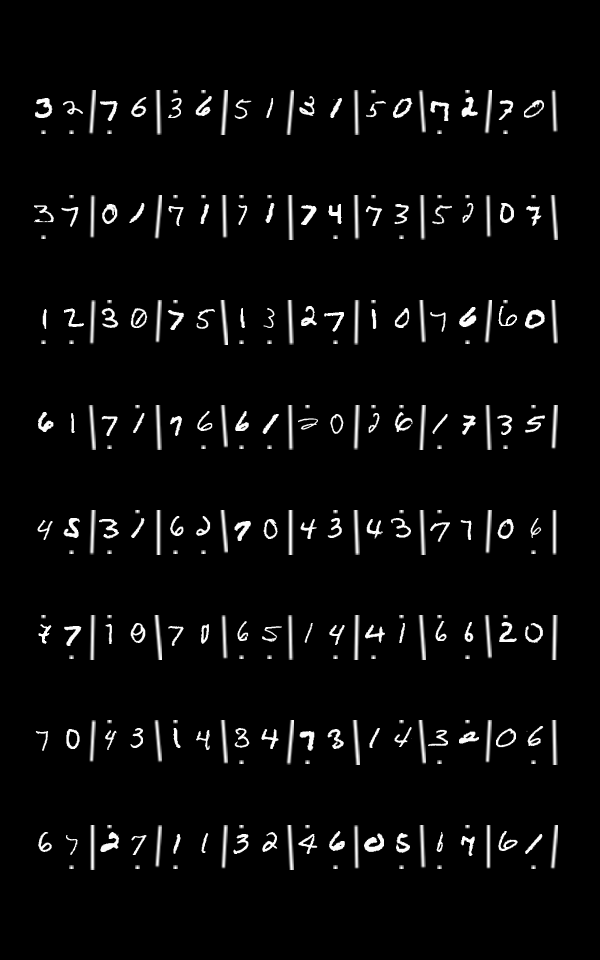 3 2 | 7 6 | 3 6 | 5 1 | 3 1 | 5 0 | 7 2 | 7 0 |
3 7 | 0 1 | 7 1 | 7 1 | 7 4 | 7 3 | 5 2 | 0 7 |
1 2 | 3 0 | 7 5 | 1 3 | 2 7 | 1 0 | 7 6 | 6 0 |
6 1 | 7 1 | 7 6 | 6 1 | 2 0 | 2 6 | 1 7 | 3 5 |
4 5 | 3 1 | 6 2 | 7 0 | 4 3 | 4 3 | 7 7 | 0 6 |
7 7 | 1 0 | 7 0 | 6 5 | 1 4 | 4 1 | 6 6 | 2 0 |
7 0 | 4 3 | 1 4 | 3 4 | 7 3 | 1 4 | 3 2 | 0 6 |
6 7 | 2 7 | 1 1 | 3 2 | 4 6 | 0 5 | 1 7 | 6 1 |